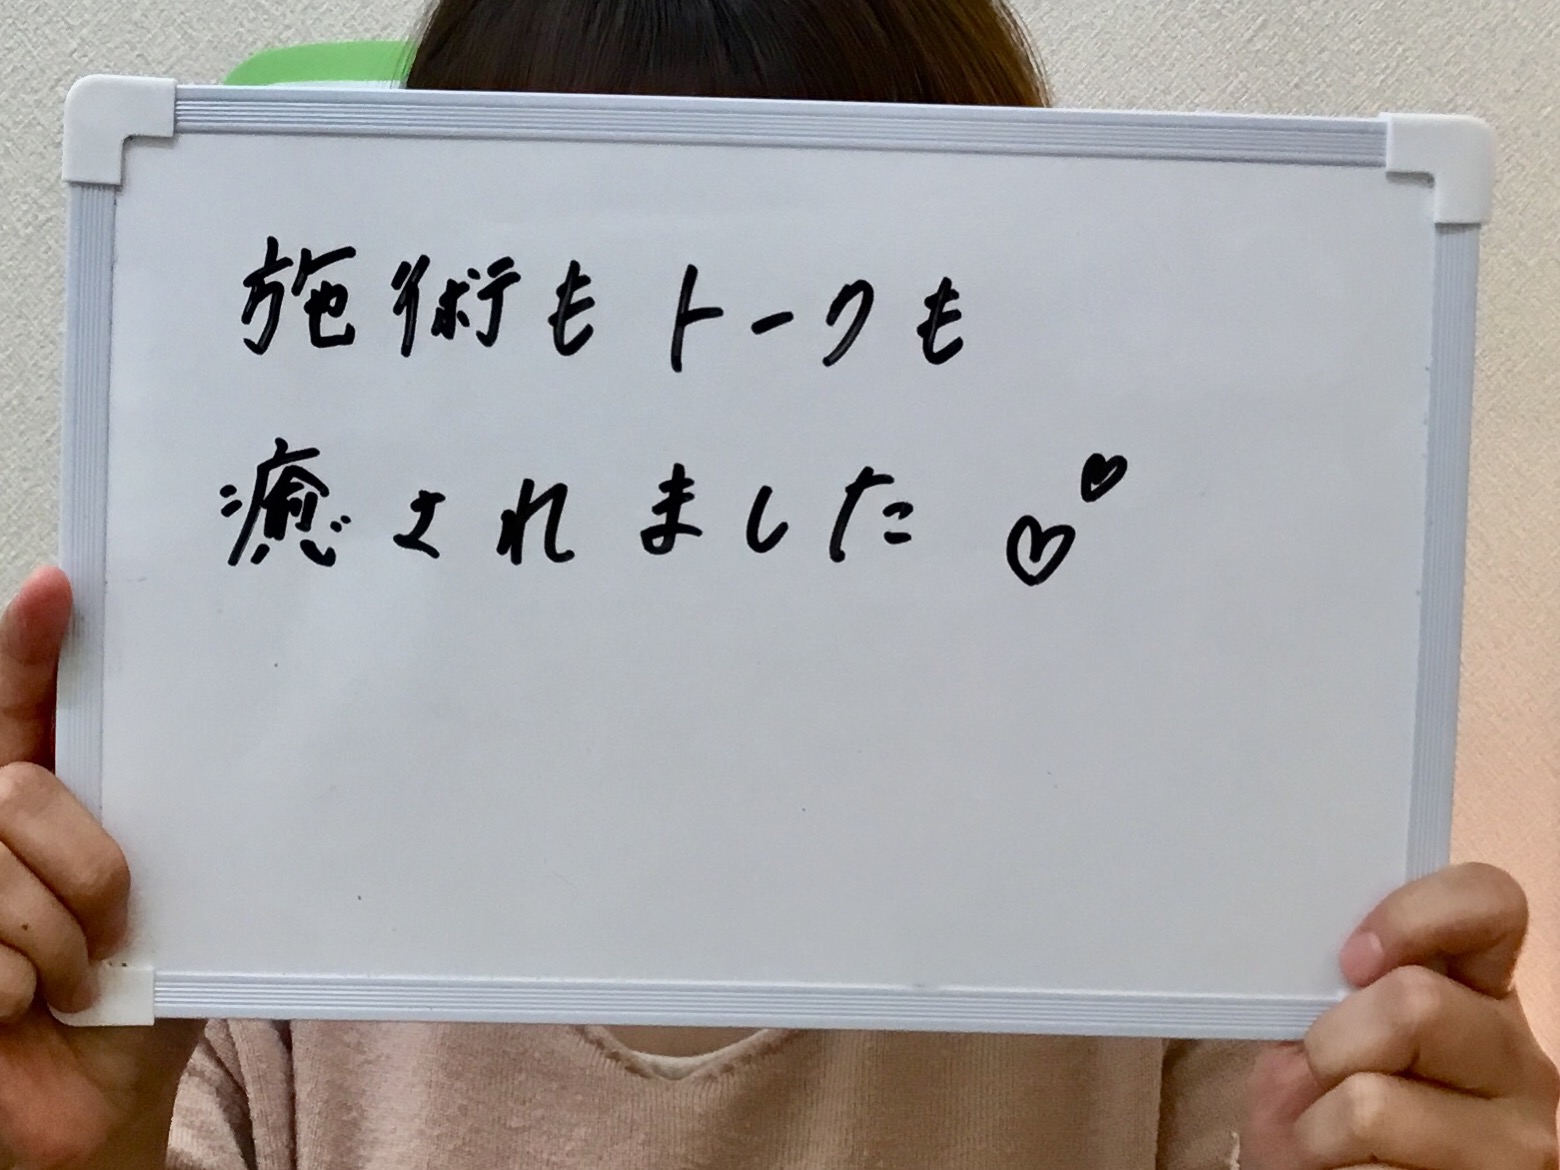 施術もトークも
癒されました♡♡